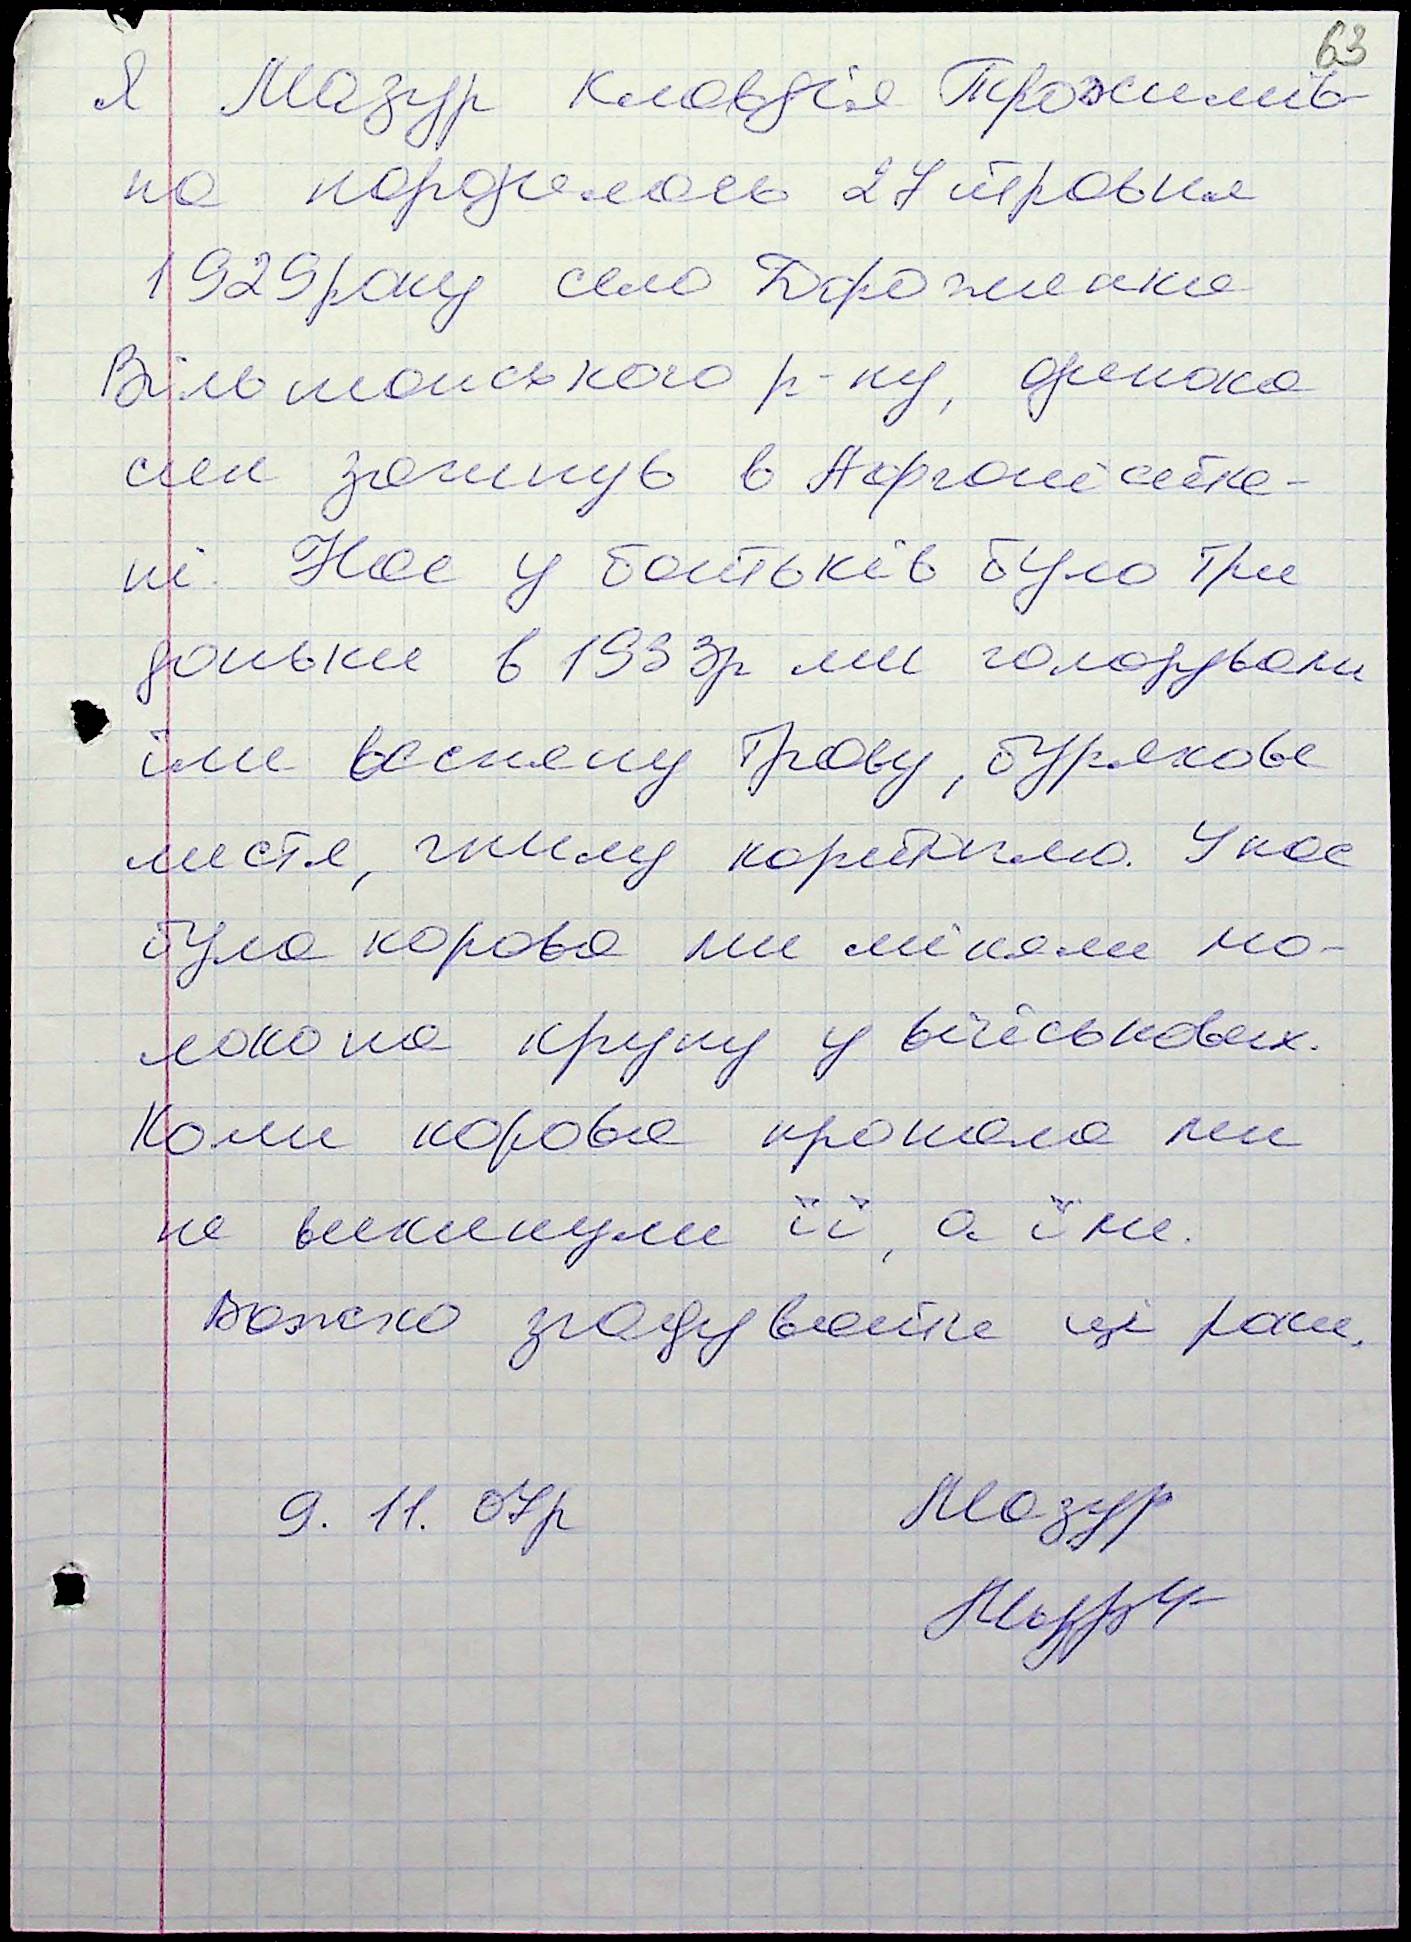 63
Я Мазур Клавдія Трохимів-
на народилась 27 травня
1929 року село Дрожинки
Вільшанського р-ну, одинока
син загинув в Афганіста-
ні. Нас у батьків було три
доньки в 1933р ми голодували
їли весняну траву, бурякове
листя, гнилу картоплю. У нас
була корова ми міняли мо-
локо на крупу у військових.
Коли корова пропала ми
не викинули її, а їли.
Важко згадувати ці роки.
9. 11. 07р Мазур